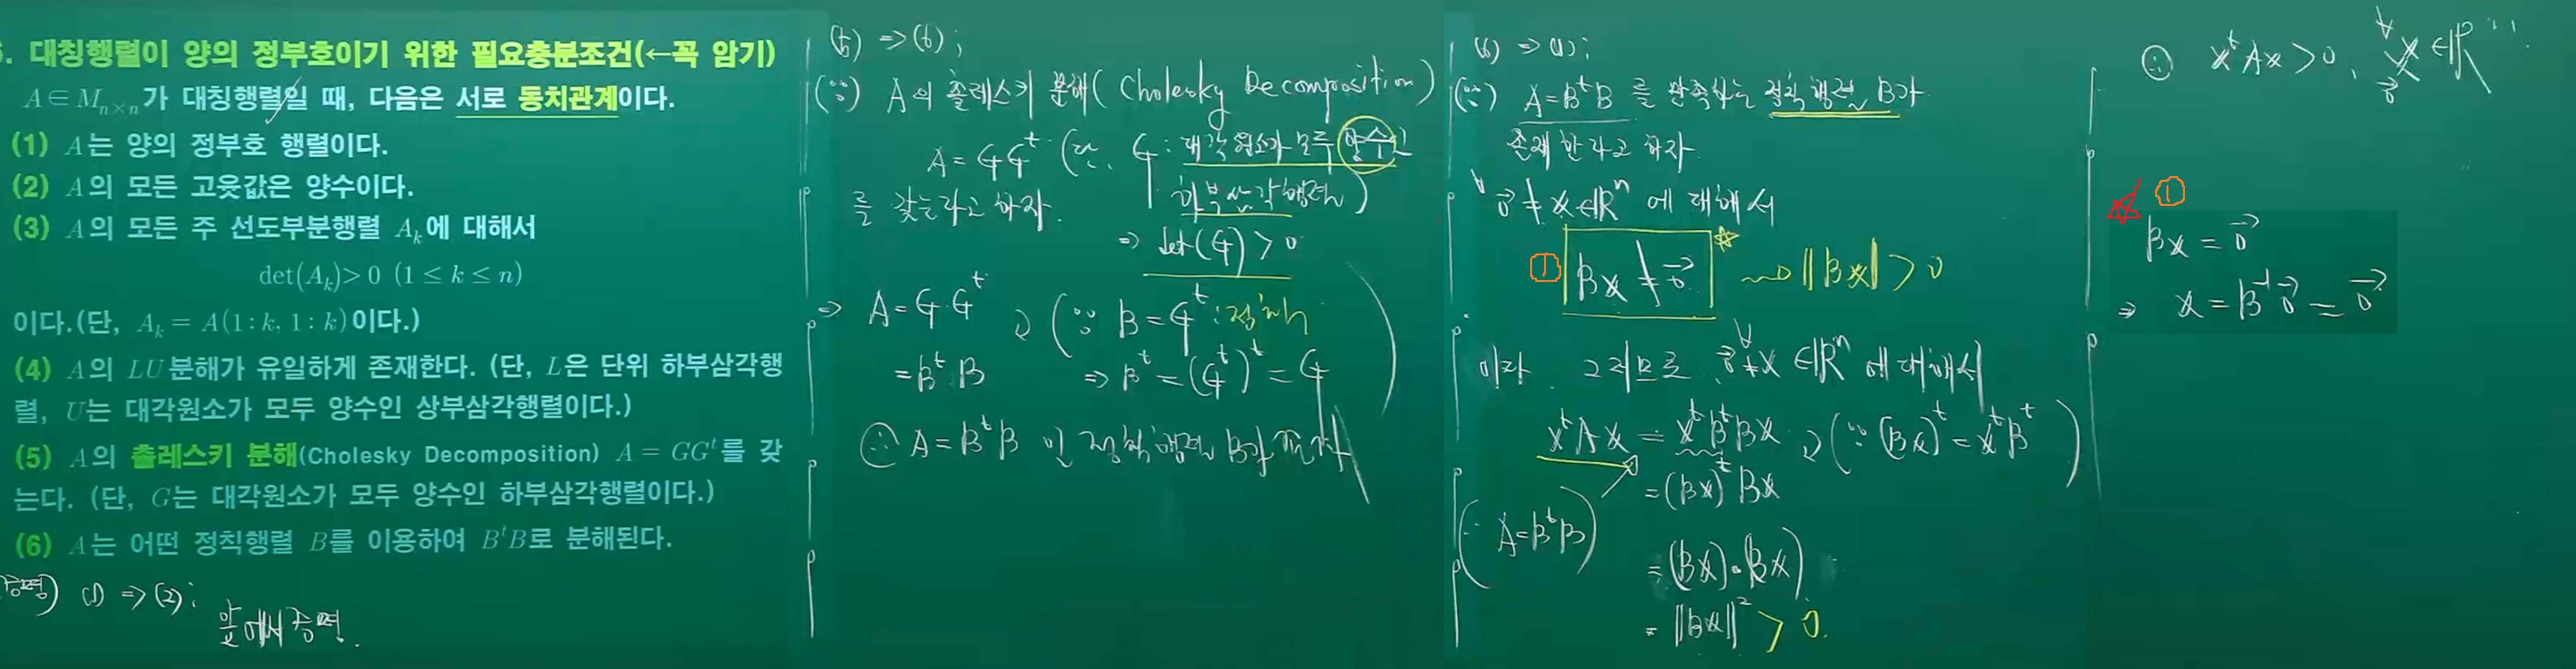 5. 대칭행렬이 양의 정부호이기 위한 필요충분조건(←꼭 암기)
A∈M_{n×n}가 대칭행렬일 때, 다음은 서로 동치관계이다.
(1) A는 양의 정부호 행렬이다.
(2) A의 모든 고윳값은 양수이다.
(3) A의 모든 주 선도부분행렬 A_k에 대해서
det(A_k)>0 (1≤k≤n)
이다.(단, A_k = A(1:k, 1:k)이다.)
(4) A의 LU분해가 유일하게 존재한다. (단, L은 단위 하부삼각행
렬, U는 대각원소가 모두 양수인 상부삼각행렬이다.)
(5) A의 촐레스키 분해(Cholesky Decomposition) A = GG^t를 갖
는다. (단, G는 대각원소가 모두 양수인 하부삼각행렬이다.)
(6) A는 어떤 정칙행렬 B를 이용하여 B^tB로 분해된다.
증명) (1) ⇒ (2);
앞에서 증명.
(5) ⇒ (6);
(∵) A의 촐레스키 분해(Cholesky Decomposition)
A = GG^t (단, G: 대각원소가 모두 양수인
하부삼각행렬)
를 갖는다고 하자.
⇒ det(G) > 0
⇒ A = G·G^t (∵ B = G^t : 정칙
= B^t B ⇒ B^t = (G^t)^t = G)
∴ A = B^t B 인 정칙행렬 B가 존재
(6) ⇒ (1);
(∵) A = B^t B 를 만족하는 정칙행렬 B가
존재한다고 하자.
∀ 0⃗ ≠ x ∈ ℝ^n 에 대해서
① Bx ≠ 0⃗ ☆ ⇝ ||Bx|| > 0
이다. 그러므로 ∀ 0⃗ ≠ x ∈ ℝ^n 에 대해서
x^t A x = x^t B^t B x (∵ (Bx)^t = x^t B^t)
= (Bx)^t Bx
(∵ A = B^t B)
= (Bx)·(Bx)
= ||Bx||² > 0.
∴ x^t A x > 0, ∀ x ≠ 0⃗ ∈ ℝ^n
☆ ①
Bx = 0⃗
⇒ x = B^{-1} 0⃗ = 0⃗